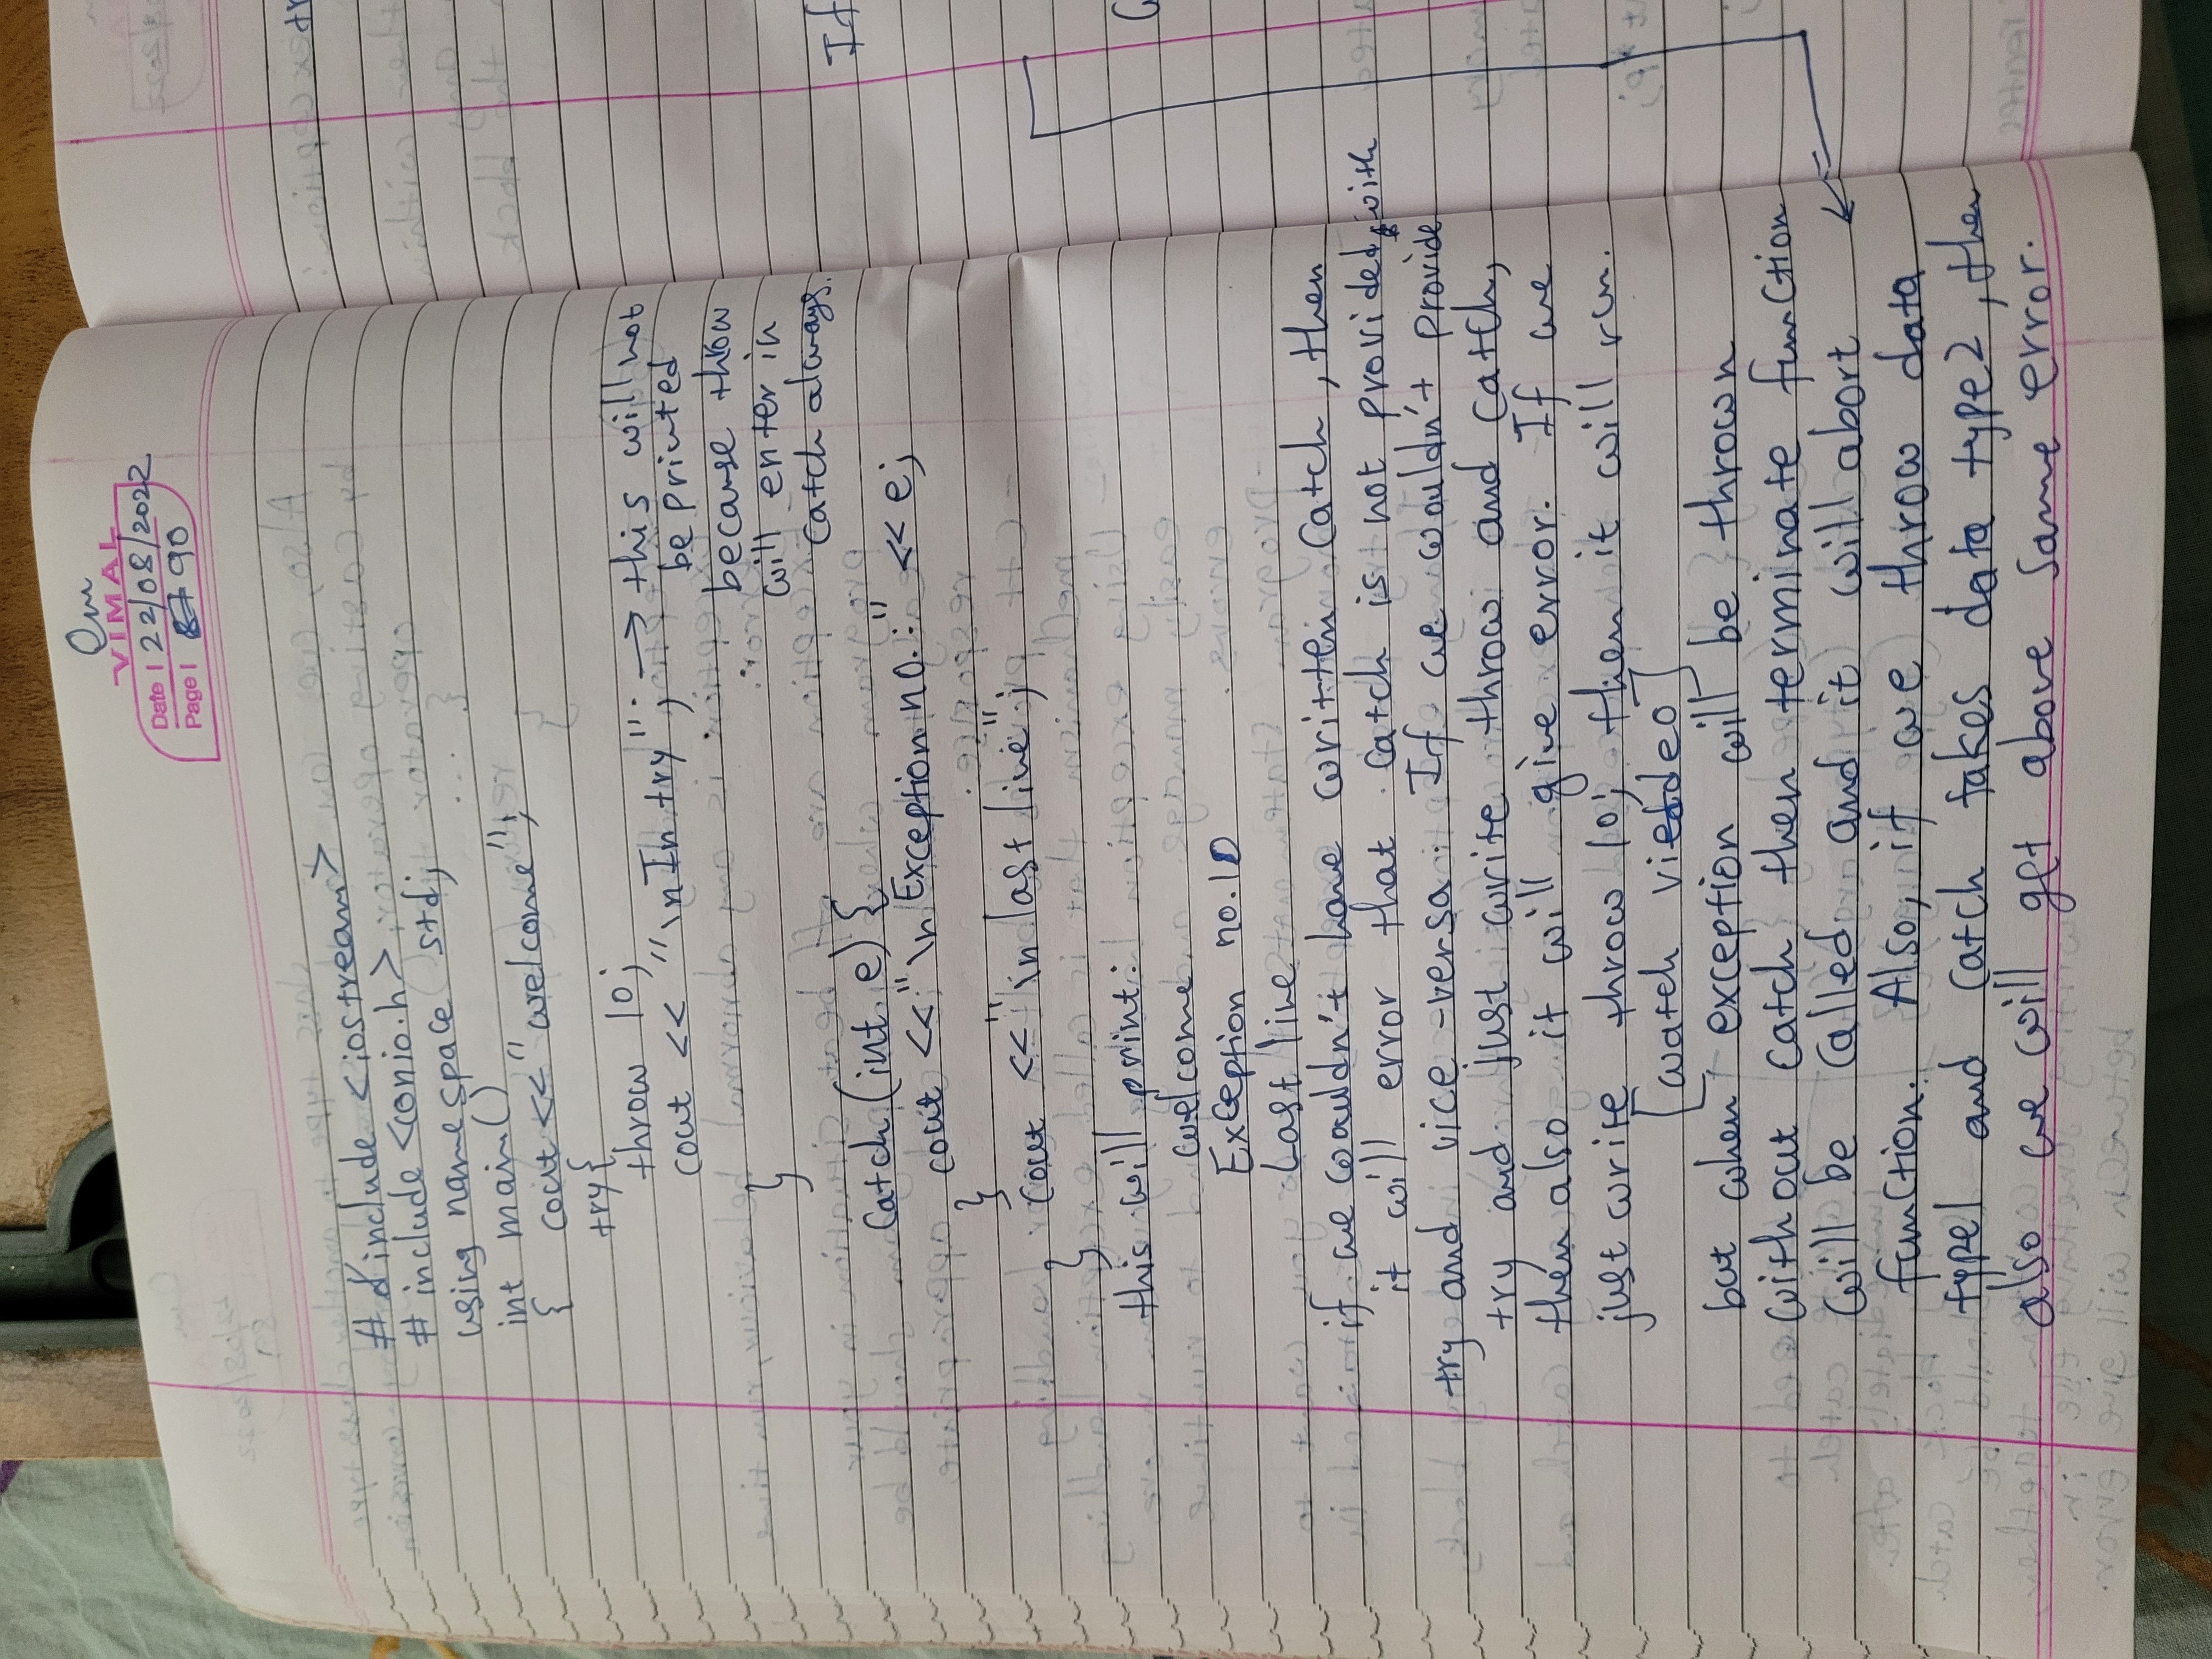 Om
VIMAL
Date | 22/08/2022
Page | 90
# include <iostream>
# include <conio.h>
using namespace std;
int main()
{ cout << "welcome";
try{
throw 10;
cout << "\nIn try"; → this will not
be printed
because throw
will enter in
catch always.
}
Catch (int e) {
cout << "\n Exception no. :" << e;
}
cout << "\n last line";
}
this will print:
welcome
Exception no.10
Last line
if we wouldn't have written catch, then
it will error that catch is not provided with
try and vice-versa. If we wouldn't provide
try and just write throw and catch,
then also it will give error. If we
just write throw 10; then it will run.
[watch video]
but when exception will be thrown
without catch then terminate function
will be called and it will abort
function. Also, if we throw data
type1 and catch takes data type2, then
also we will get above same error.
If